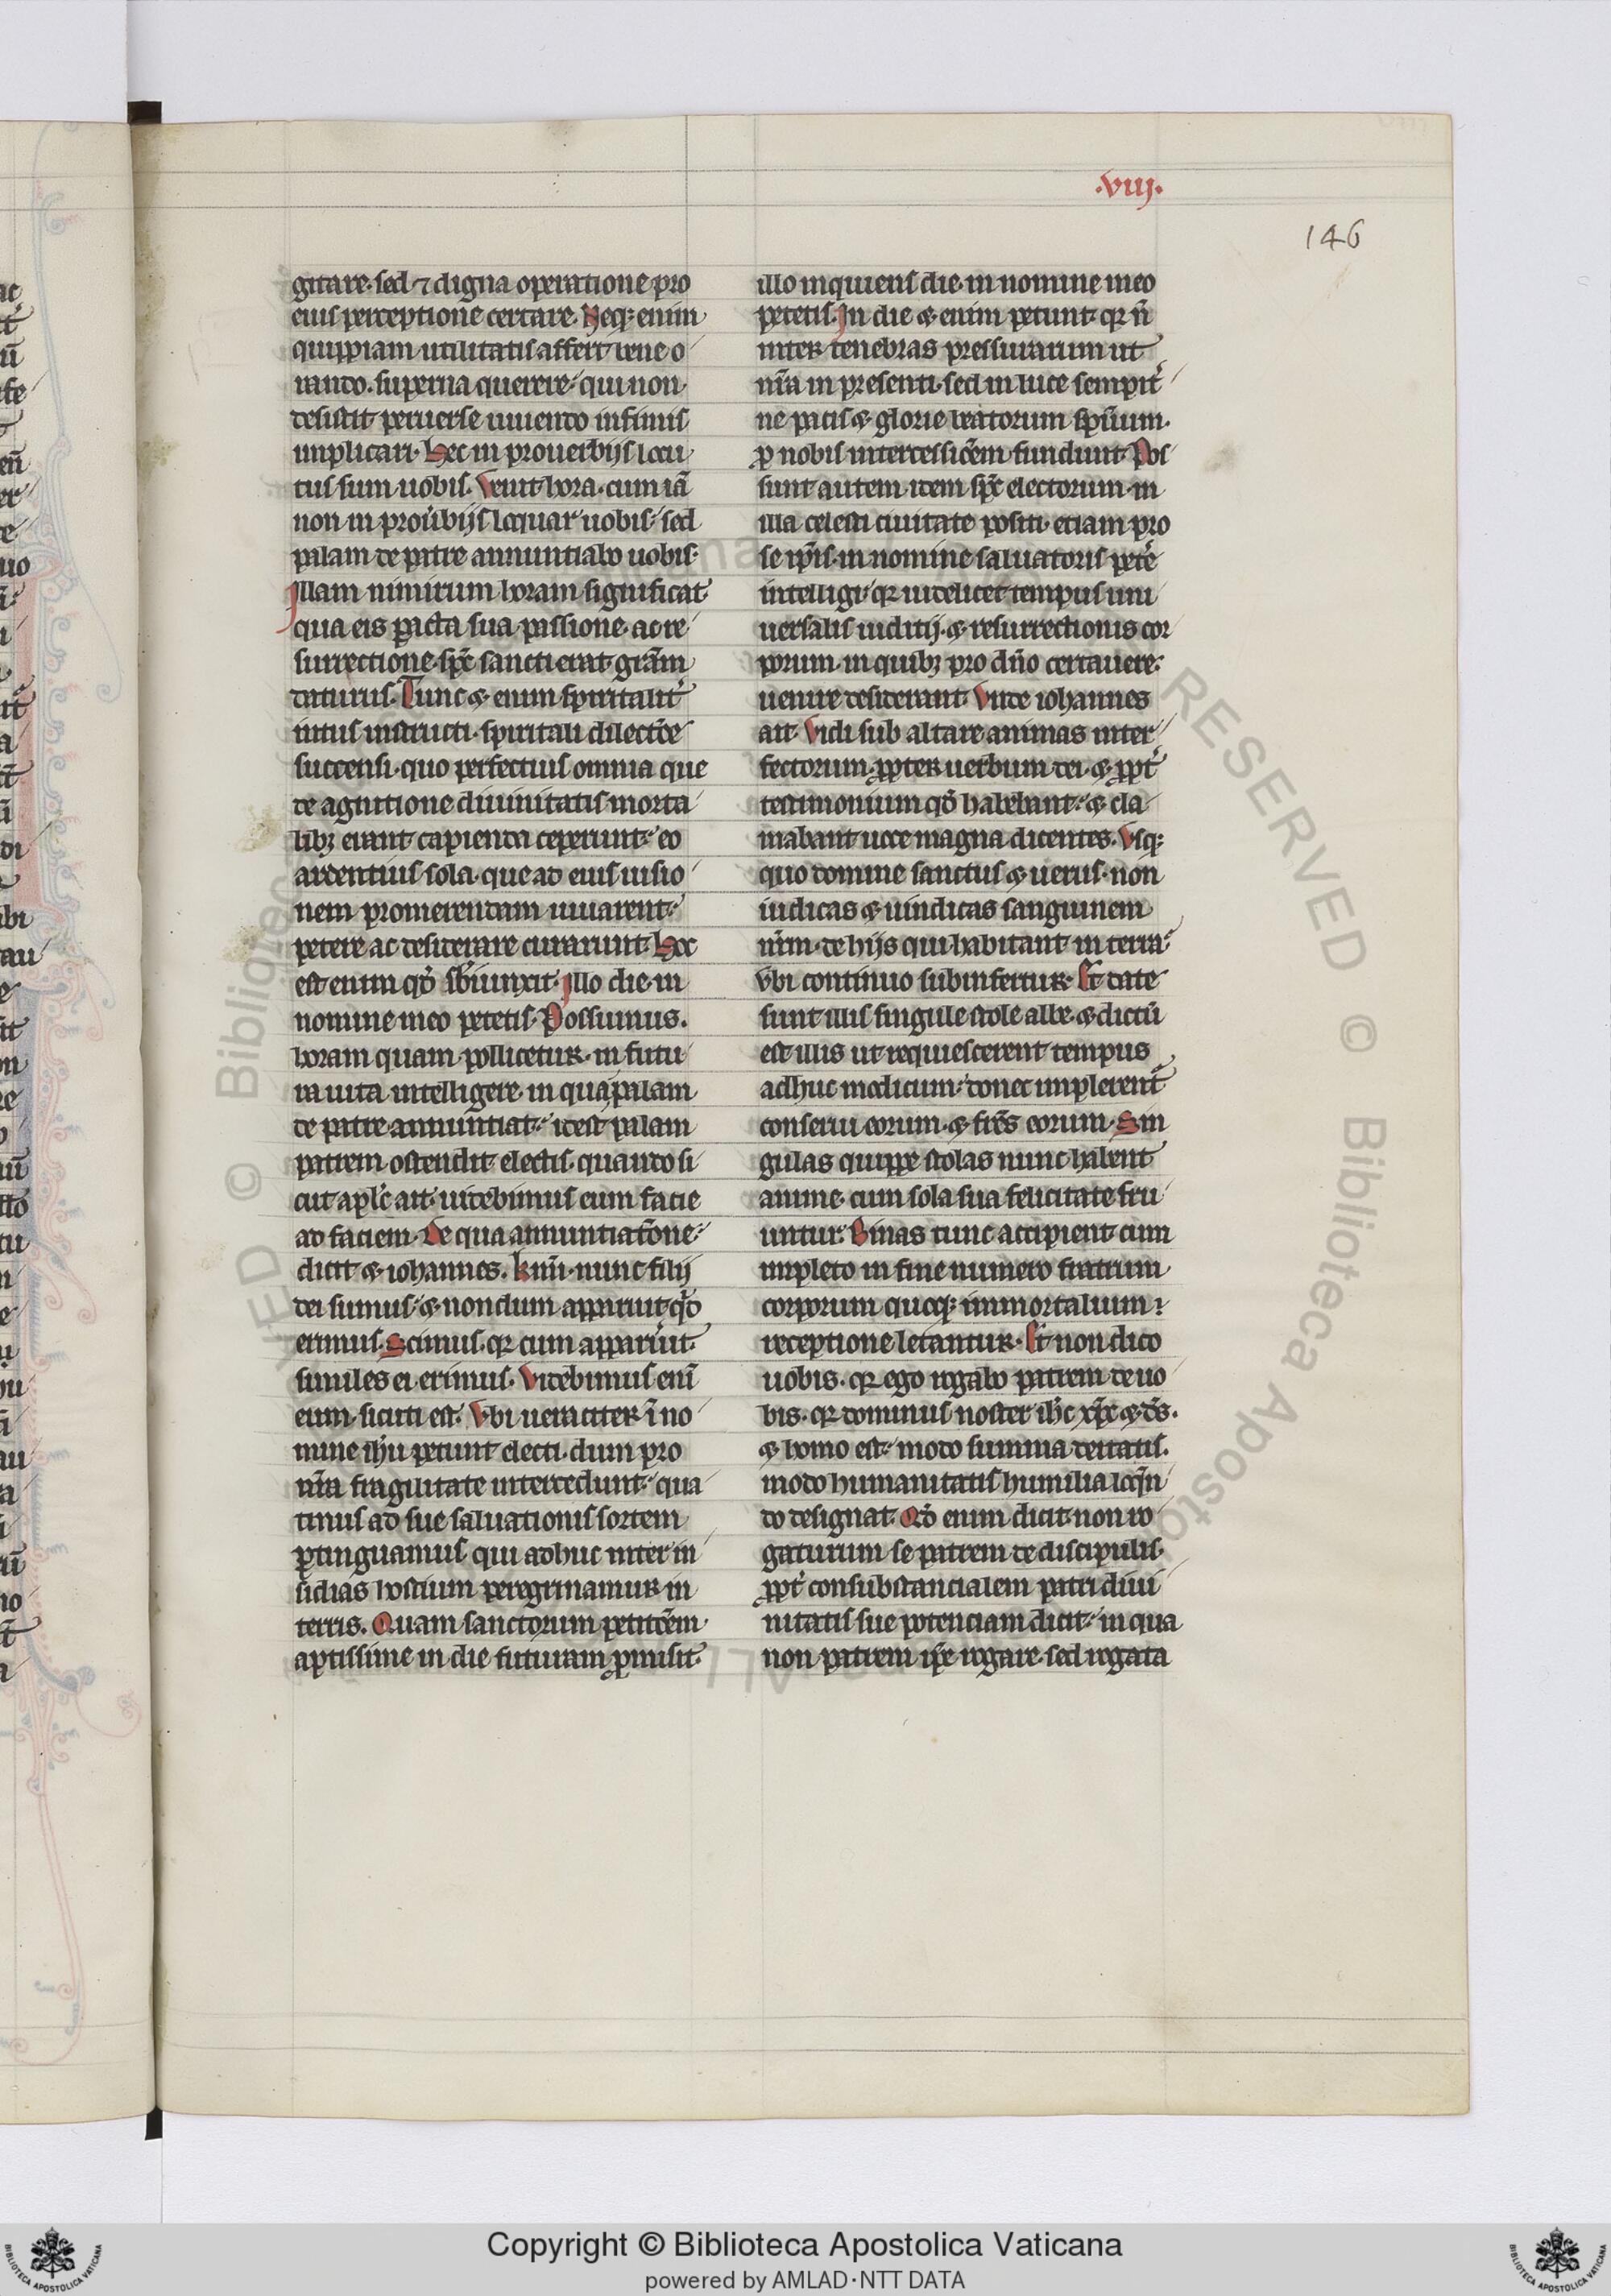 .viij.
146
gitare. sed ⁊ digna operatione pro
eius perceptione certare. Neqꝫ enim
quippiam utilitatis affert bene o
rando. superna querere qui non
desistit peruerse uiuendo infimis
implicari. Hec in prouerbijs locu
tus sum uobis. Venit hora. cum iā
non in prou̾bijs loquar uobis sed
palam de patre annuntiabo uobis.
Illam nimirum horam significat
qua eis ꝑacta sua passione ac re
surrectione sp̄c sancti erat grām
daturus. Tunc ⁊ enim spiritalit̾
intus instructi. spiritali dilectōe
succensi. quo perfectius omnia que
de agnitione diuinitatis morta
libꝫ erant capienda ceperunt eo
ardentius sola. que ad eius uisio
nem promerendam iuuarent
petere ac desiderare curarunt. Hoc
est enim qd̾ sb̾iunxit. Illo die in
nomine meo petetis. Possumus.
horam quam pollicetur. in futu
ra uita intelligere in qua palam
de patre annuntiat idest palam
patrem ostendit electis. quando si
cut apl̄c ait uidebimus eum facie
ad faciem. De qua annuntiatōne
dicit ⁊ iohannes. Kmi̅. nunc filij
dei sumus ⁊ nondum apparuit qd̾
erimus. Scimus. qꝛ cum apparu̾it.
similes ei erimus. Videbimus eni̅
eum sicuti est. Vbi ueraciter ī no
mine ih̄u petunt electi. dum pro
nr̄a fragilitate intercedunt qua
tinus ad sue saluationis sortem
ꝑtinguamus qui adhuc inter in
sidias hostium peregrinamur in
terris. Quam sanctorum petitōem
aptissime in die futuram ꝓmisit.
illo inquiens die in nomine meo
petetis. In die ⁊ enim petunt qꝛ n̄
inter tenebras pressurarum ut
nr̄a in presenti. sed in luce sempit̾
ne pacis ⁊ glorie beatorum sp̄uum.
ꝓ nobis intercessiōem fundunt. Pos
sunt autem item sp̄c electorum in
illa celesti ciuitate positi. etiam pro
se ip̄is. in nomine saluatoris pete̾
intelligi qꝛ uidelicet tempus uni
uersalis iudicij. ⁊ resurrectionis cor
porum in quibꝫ pro dn̄o certauere
uenire desiderant. Vnde iohannes
ait. Vidi sub altare animas inter
fectorum. ꝓpter uerbum dei. ⁊ ꝓpt̾
testimonium qd̾ habebant ⁊ cla
mabant uoce magna dicentes. Vsqꝫ
quo domine sanctus ⁊ uerus. non
iudicas ⁊ uindicas sanguinem
nr̄m. de hijs qui habitant in terra
Vbi continuo subinfertur. Et date
sunt illis singule stole albe. ⁊ dictū
est illis ut requiescerent tempus
adhuc modicum donec implerent̾
conserui eorum. ⁊ fr̄es eorum. Sin
gulas quippe stolas nunc habent
anime. cum sola sua felicitate fru
untur. Binas tunc accipient cum
impleto in fine numero fratrum
corporum quoqꝫ immortalium
receptione letantur. Et non dico
uobis. qꝛ ego rogabo patrem de uo
bis. qꝛ dominus noster ih̄c xp̄c ⁊ d̄s.
⁊ homo est modo summa deitatis.
modo humanitatis humilia loq̄n
do designat. Qd̾ enim dicit non ro
gaturum se patrem de discipulis.
ꝓpt̾ consubstancialem patri diui
nitatis sue potenciam dicit in qua
non patrem ip̄e rogare. sed rogata
Copyright © Biblioteca Apostolica Vaticana
powered by AMLAD·NTT DATA